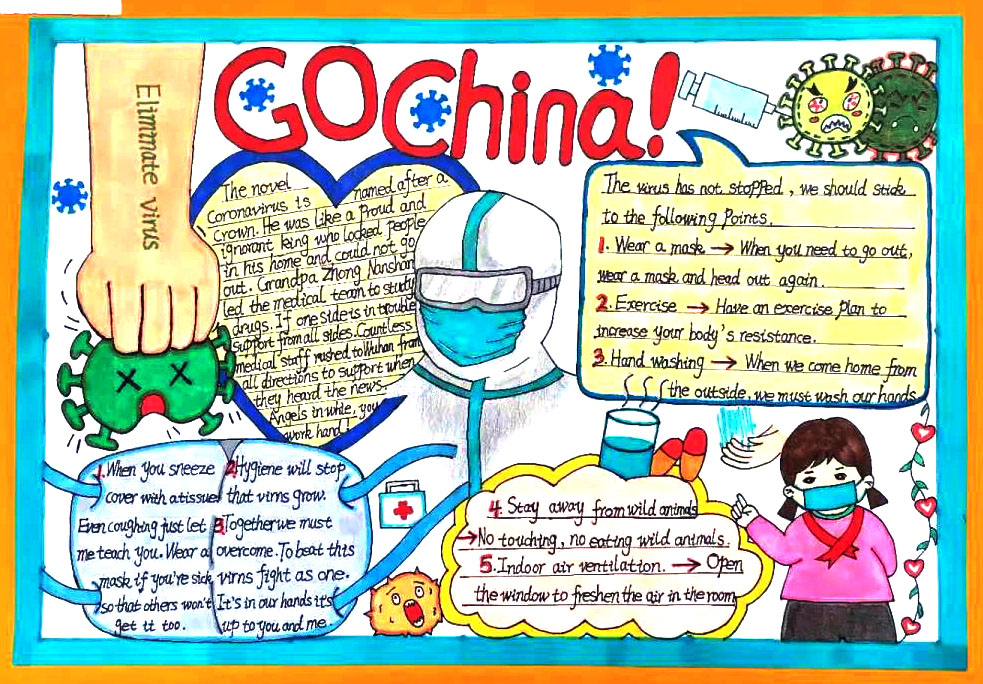 GO China!
Elimnate virus
The novel
Coronavirus is named after a
Crown. He was like a Proud and
ignorant king who locked people
in his home and could not go
out. Grandpa Zhong Nanshan
led the medical team to study
drugs. If one side is in trouble
support from all sides. Countless
medical staff rushed to Wuhan from
all directions to support when
they heard the news.
Angels in while, you
work hand!
The virus has not stopped, we should stick
to the following Points.
1. Wear a mask → When you need to go out,
wear a mask and head out again.
2. Exercise → Have an exercise Plan to
increase your body's resistance.
3. Hand washing → When we come home from
the outside, we must wash our hands
1. When you sneeze
cover with a tissue
Even coughing just let
me teach you. Wear a
mask if you're sick
so that others won't
get it too.
2. Hygiene will stop
that virns grow.
3. Together we must
overcome. To beat this
virns fight as one.
It's in our hands it's
up to you and me.
4. Stay away from wild animals
→ No touching, no eating wild animals.
5. Indoor air ventilation. → Open
the window to freshen the air in the room